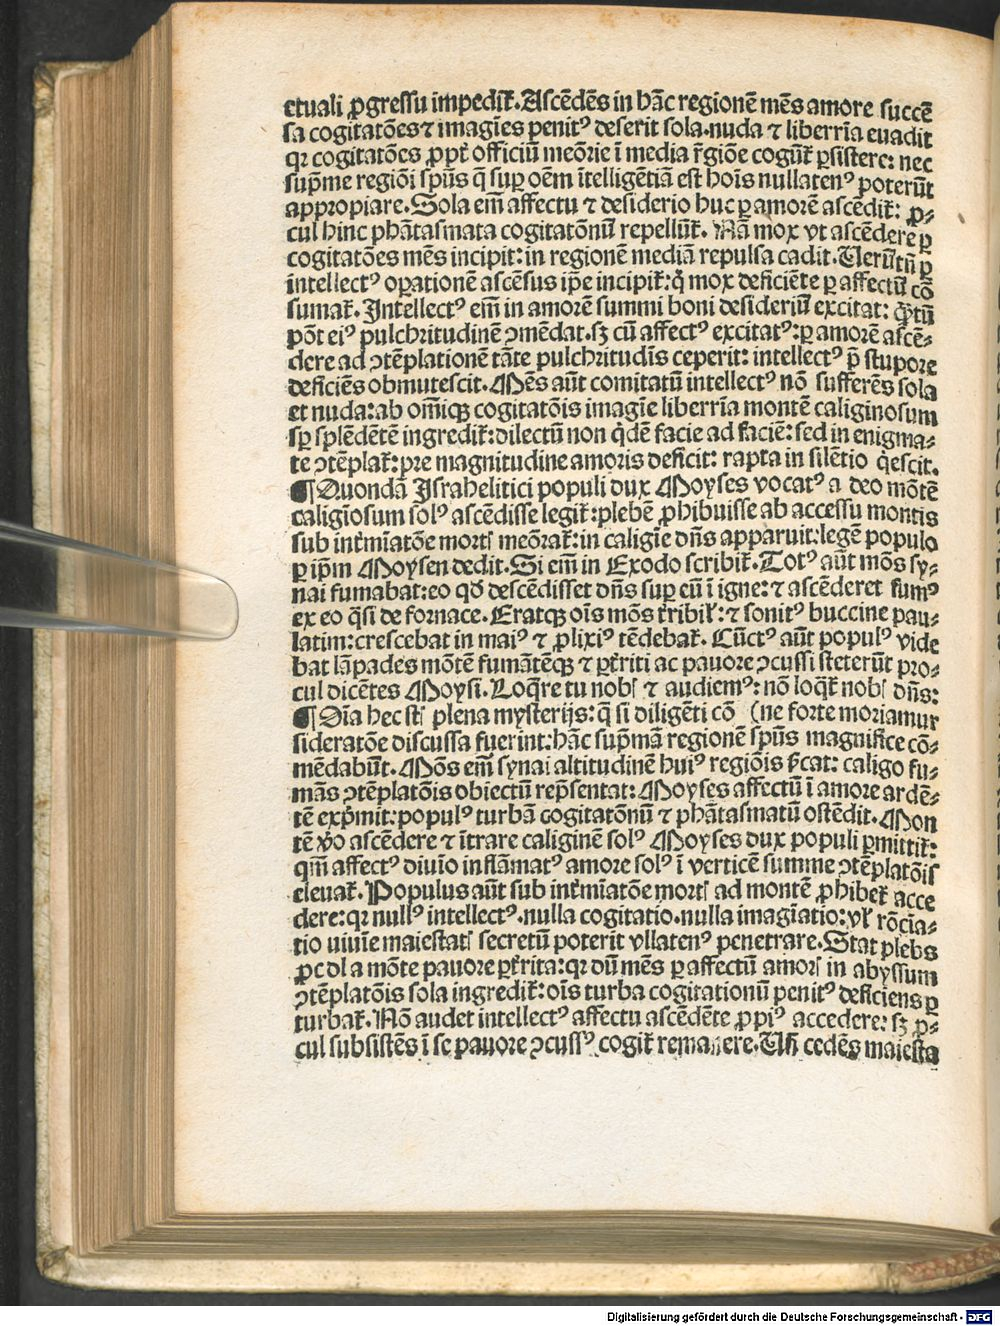 ctuali ꝓgressu impediť. Ascēdēs in hāc regionē mēs amore succē
sa cogitatōes ⁊ imagīes penitꝰ deserit sola. nuda ⁊ liberrīa euadit
qꝛ cogitatōes ꝓpť officiū meōrie ī media r̄giōe cogūť ꝑsistere: nec
sup̄me regiōi sp̄us q̄ suꝑ oēm ītelligētiā est hoīs nullatenꝰ poterūt
appropiare. Sola em̄ affectu ⁊ desiderio huc ꝑ amorē ascēdiť: ꝓ⸗
cul hinc phātasmata cogitatōnū repellūť. Nā mox vt ascēdere ꝑ
cogitatōes mēs incipit: in regionē mediā repulsa cadit. Uerūtn̄ ꝑ
intellectꝰ oꝑationē ascēsus ip̄e incipiť: q̇ mox deficiēte ꝑ affectū cō
sumať. Intellectꝰ em̄ in amorē summi boni desideriū excitat: q̄tū
pōt eiꝰ pulchritudinē ꝯmēdat. sꝫ cū affectꝰ excitatꝰ: ꝑ amorē ascē⸗
dere ad ꝯtēplationē tāte pulchritudīs ceperit: intellectꝰ p̄ stupore
deficiēs obmutescit. Mēs aūt comitatū intellectꝰ nō sufferēs sola
et nuda: ab om̄iqꝫ cogitatōis imagīe liberrīa montē caliginosum
sꝑ splēdētē ingrediť: dilectū non q̇dē facie ad faciē: sed in enigma⸗
te ꝯtēplať: pre magnitudine amoris deficit: rapta in silētio q̇escit.
¶ Quondā Israhelitici populi dux Moyses vocatꝰ a deo mōtē
caligīosum solꝰ ascēdisse legiť: plebē ꝓhibuisse ab accessu montis
sub inťmiatōe mortꝭ meōrať: in caligīe dn̄s apparuit: legē populo
ꝑ ip̄m Moysen dedit. Si em̄ in Exodo scribiť. Totꝰ aūt mōs sy⸗
nai fumabat: eo qđ descēdisset dn̄s suꝑ eū ī igne: ⁊ ascēderet fumꝰ
ex eo q̄si de fornace. Eratqꝫ oīs mōs ťribiƚ: ⁊ sonitꝰ buccine pau⸗
latim: crescebat in maiꝰ ⁊ ꝓlixiꝰ tēdebať. Cūctꝰ aūt populꝰ vide
bat lāpades mōtē fumātēqꝫ ⁊ ꝑťriti ac pauore ꝯcussi steterūt pro⸗
cul dicētes Moysi. Loq̄re tu nobꝭ ⁊ audiemꝰ: nō loq̄ť nobꝭ dn̄s:
¶ Oīa hec stꝭ plena mysterijs: q̄ si diligēti cō (ne forte moriamur
sideratōe discussa fuerint: hāc sup̄mā regionē sp̄us magnifice cō⸗
mēdabūt. Mōs em̄ synai altitudinē huiꝰ regiōis ẜcat: caligo fu⸗
māns ꝯtēplatōis obiectū rep̄sentat: Moyses affectū ī amore ardē⸗
tē exp̄mit: populꝰ turbā cogitatōnū ⁊ phātasmatū ostēdit. Mon
tē ỽo ascēdere ⁊ ītrare caliginē solꝰ Moyses dux populi ꝑmittiť:
qm̄ affectꝰ diuīo inflāmatꝰ amore solꝰ ī verticē summe ꝯtēplatōis
eleuať. Populus aūt sub inťmiatōe mortꝭ ad montē ꝓhibeť acce
dere: qꝛ nullꝰ intellectꝰ. nulla cogitatio. nulla imagīatio: vƚ rōcīa⸗
tio uiuīe maiestatꝭ secretū poterit vllatenꝰ penetrare. Stat plebs
ꝓcol a mōte pauore ꝑťrita: qꝛ dū mēs ꝑ affectū amorꝭ in abyssum
ꝯtēplatōis sola ingrediť: oīs turba cogitationū penitꝰ deficiens ꝑ
turbať. Nō audet intellectꝰ affectu ascēdēte ꝓpiꝰ accedere: sꝫ ꝓ⸗
cul subsistēs ī se pauore ꝯcussꝰ cogiť remanere. Uñ cedēs maiesta
Digitalisierung gefördert durch die Deutsche Forschungsgemeinschaft - DFG